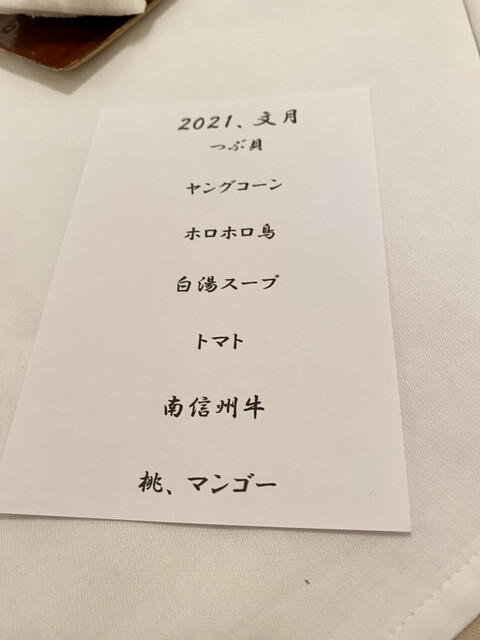 2021、文月
つぶ貝
ヤングコーン
ホロホロ鳥
白湯スープ
トマト
南信州牛
桃、マンゴー